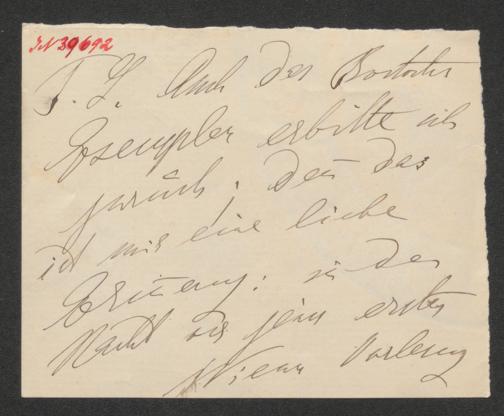 J.N 39692
T. L. Auch das
Exemplar erbitte ich
zurück. Denn das
ist mir eine liebe
Erinerung: in der
Nacht vor jener ersten
Wiener Vorlesung